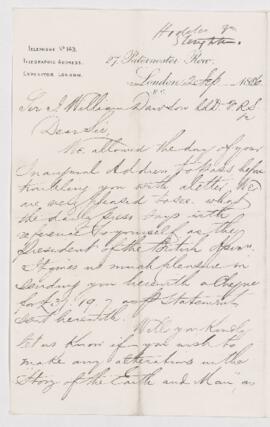 Hodder &
Stoughton
TELEPHONE No 143.
TELEGRAPHIC ADDRESS.
EXPOSITOR LONDON.
27 Paternoster Row.
London 2 Sep 1886
Sir J William Dawson LLD. F.R.S
Dear Sir,
We allowed the day of your
Inaugural Address to pass before
troubling you with a letter. We
are very pleased to see what
the daily press says with
reference to yourself as the
President of the British Assocn.
It gives us much pleasure in
sending you herewith a cheque
for 19. 7 as Statement
sent herewith.
Will you kindly
let us know if you wish to
make any alterations in the
"Story of the Earth and Man", as